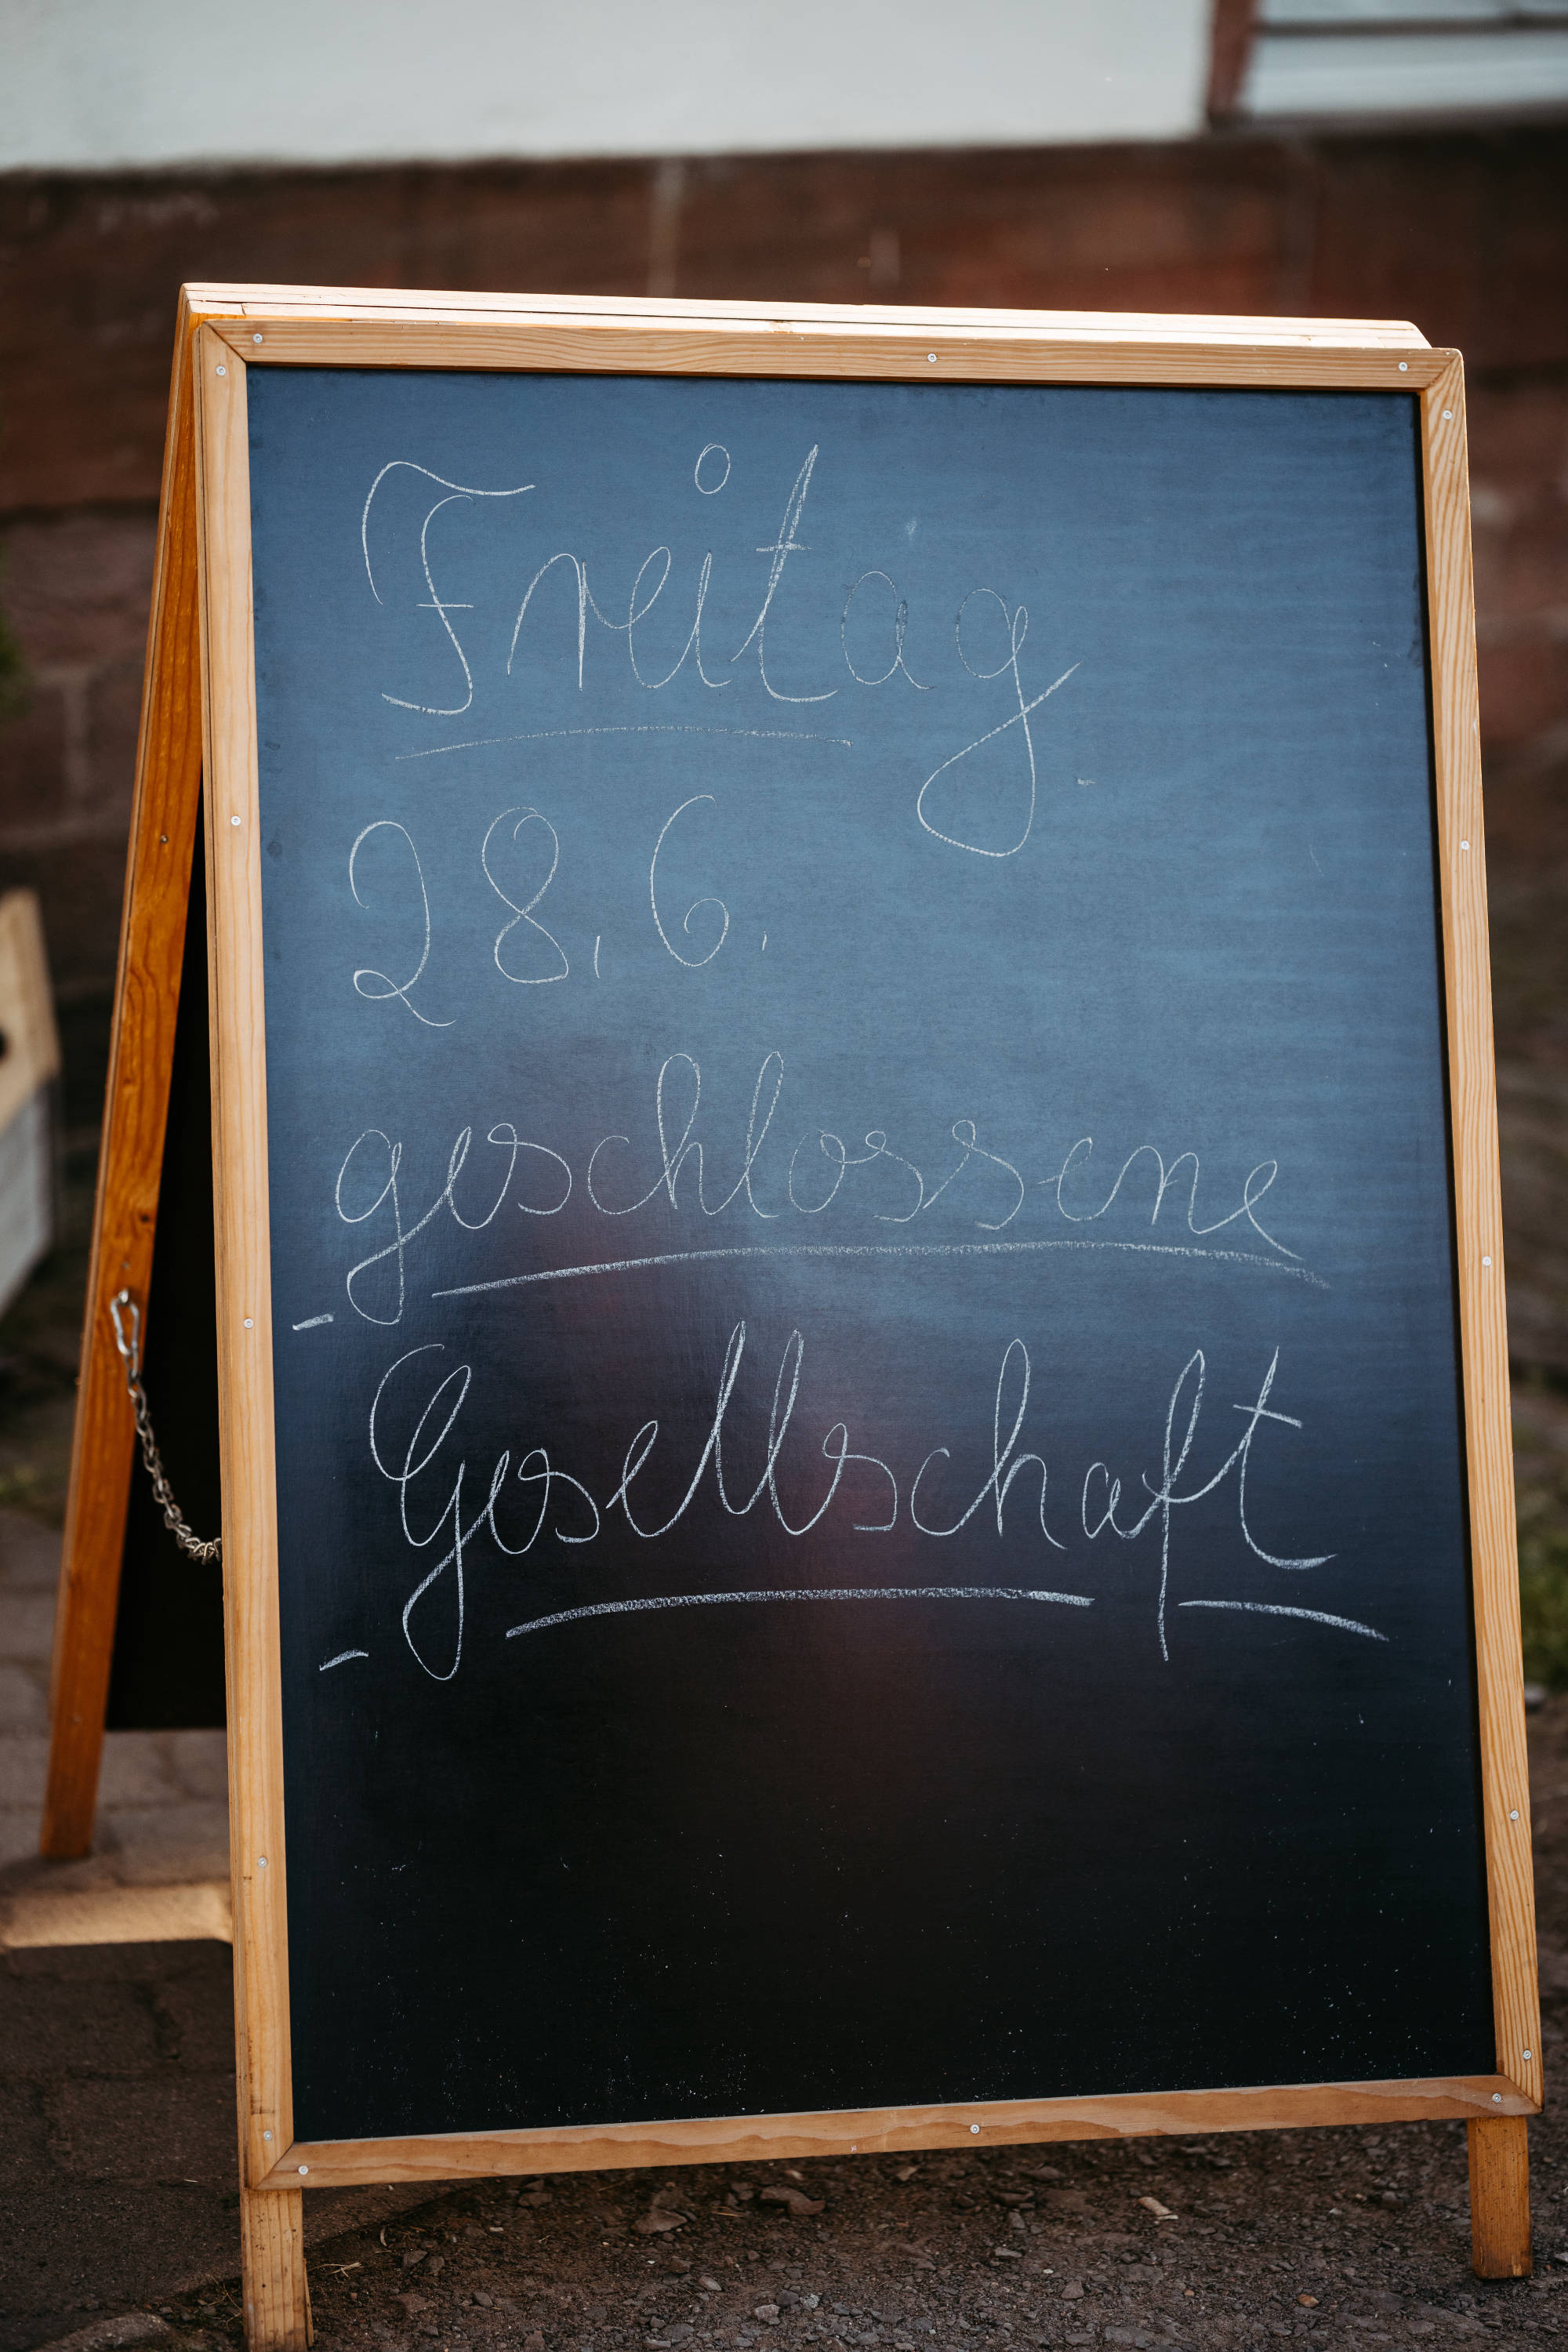 Freitag
28.6.
geschlossene
Gesellschaft